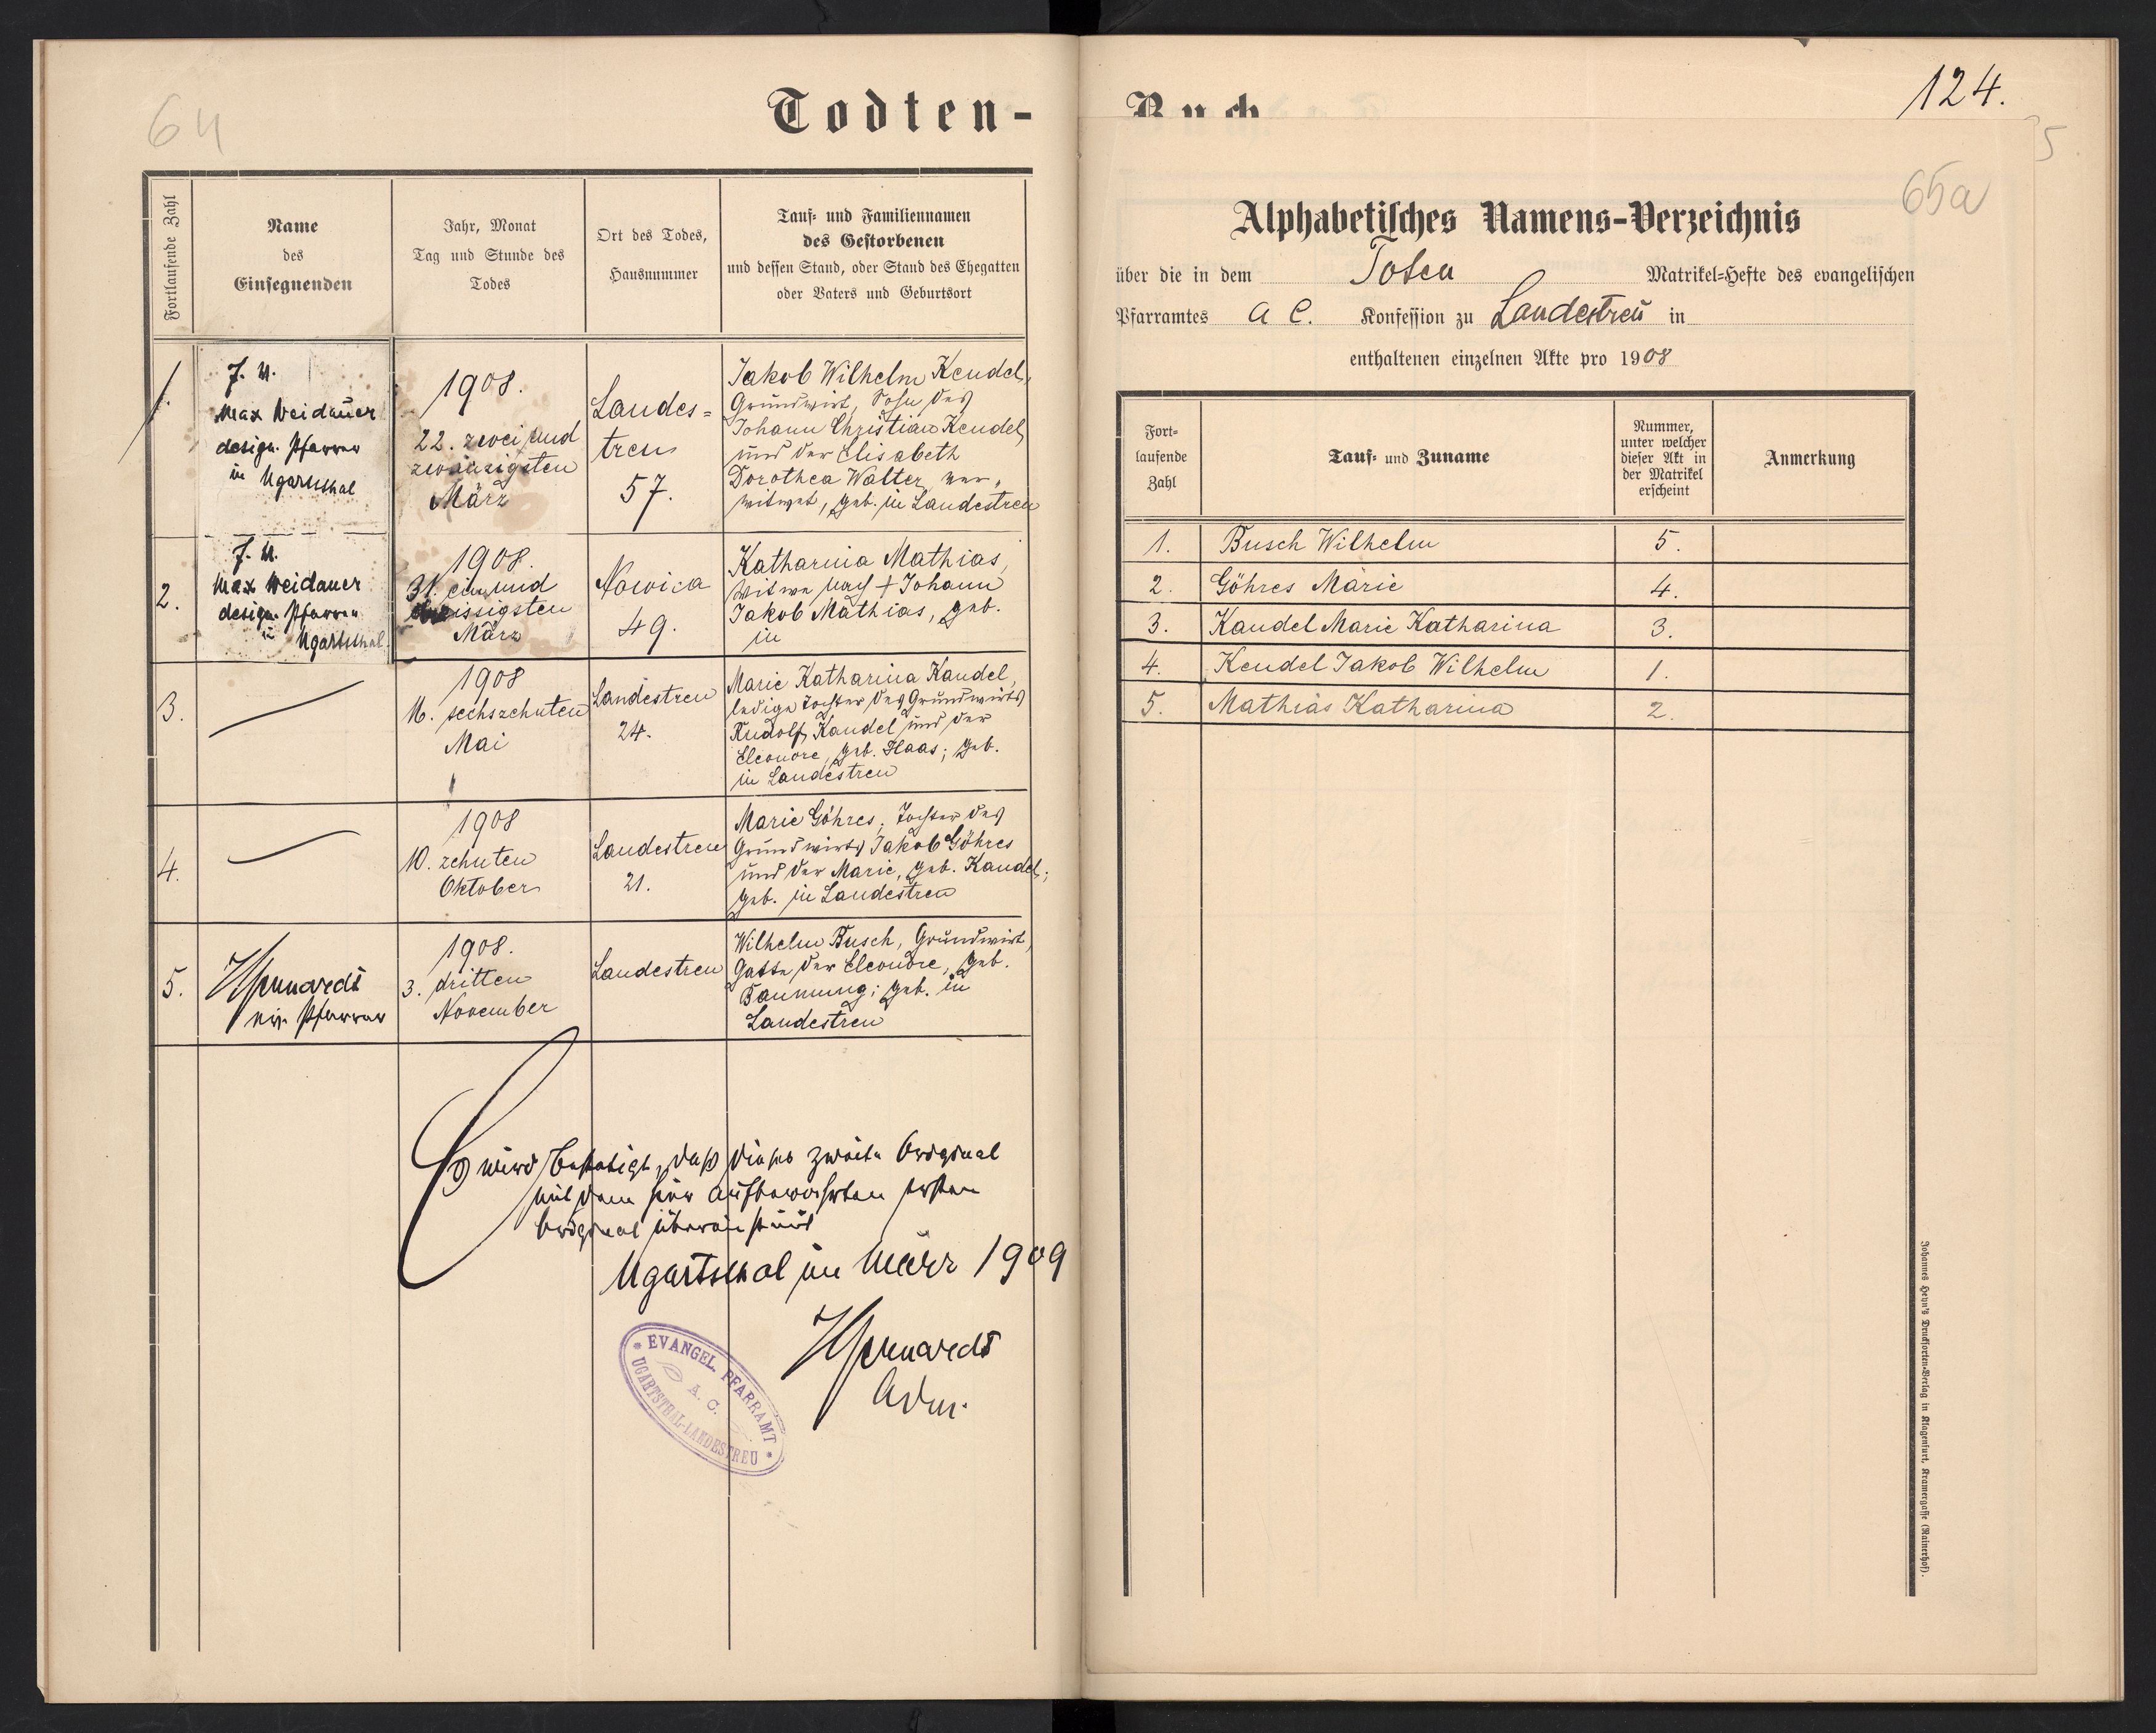 64
Todten-
Fortlaufende Zahl
Name
des
Einsegnenden
Jahr, Monat
Tag und Stunde des
Todes
Ort des Todes,
Hausnummer
Tauf- und Familiennamen
des Gestorbenen
und dessen Stand, oder Stand des Ehegatten
oder Vaters und Geburtsort
1.
J. U.
Max Weidauer
design. Pfarrer
in Ugartsthal
1908.
22. zwei und
zwanzigsten
März
Landes=
treu
57.
Jakob Wilhelm Kendel,
Grundwirt, Sohn des
Johann Christian Kendel
und der Elisabeth
Dorothea Walter, ver-
witwet, geb. in Landestreu
2.
J. U.
Max Weidauer
design. Pfarrer
in Ugartsthal
1908.
31. ein und
dreissigsten
März
Nowica
49.
Katharina Mathias,
Witwe nach + Johann
Jakob Mathias, geb.
in
3.
1908
16. sechszehnten
Mai
Landestreu
24.
Marie Katharina Kandel,
ledige Tochter des Grundwirts
Rudolf Kandel und der
Eleonore, geb. Haas; geb.
in Landestreu
4.
1908
10. zehnten
Oktober
Landestreu
21.
Marie Göhres, Tochter des
Grundwirts Jakob Göhres
und der Marie, geb. Kandel;
geb. in Landestreu
5.
Pfarrer
1908.
3. dritten
November
Landestreu
Wilhelm Busch, Grundwirt,
Gatte der Eleonore, geb.
geb. in
Landestreu
Es wird bestätigt, daß dieses zweite Original
mit dem hier aufbewahrten ersten
Original übereinstimmt
Ugartsthal im März 1909
Adm.
EVANGEL. PFARRAMT
A. C.
UGARTSTHAL-LANDESTREU
Buch
124.
5
65a
Alphabetisches Namens-Verzeichnis
über die in dem Toten Matrikel-Hefte des evangelischen
Pfarramtes A C. Konfession zu Landestreu in
enthaltenen einzelnen Akte pro 1908
Fort-
laufende
Zahl
Tauf- und Zuname
Nummer,
unter welcher
dieser Akt in
der Matrikel
erscheint
Anmerkung
1. Busch Wilhelm 5.
2. Göhres Marie 4.
3. Kandel Marie Katharina 3.
4. Kendel Jakob Wilhelm 1.
5. Mathias Katharina 2.
Johannes Heyn's Drucksorten-Verlag in Klagenfurt, Kramergasse (Rainerhof).